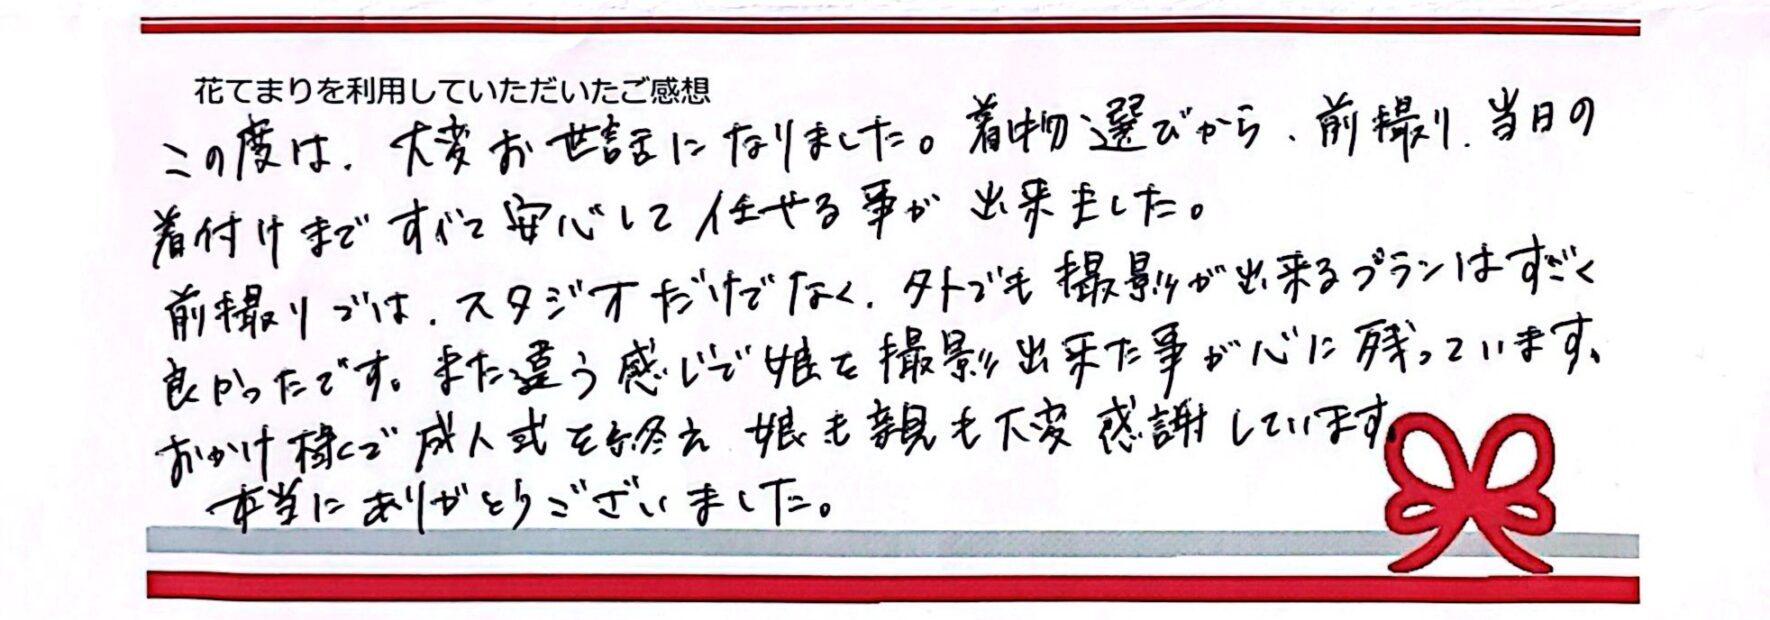 花てまりを利用していただいたご感想
この度は、大変お世話になりました。着物選びから、前撮り、当日の
着付けまですべて安心して任せる事が出来ました。
前撮りでは、スタジオだけでなく、外でも撮影が出来るプランはすごく
良かったです。また違う感じで娘を撮影出来た事が心に残っています。
おかげ様で成人式を終え 娘も親も大変感謝しています。
本当にありがとうございました。